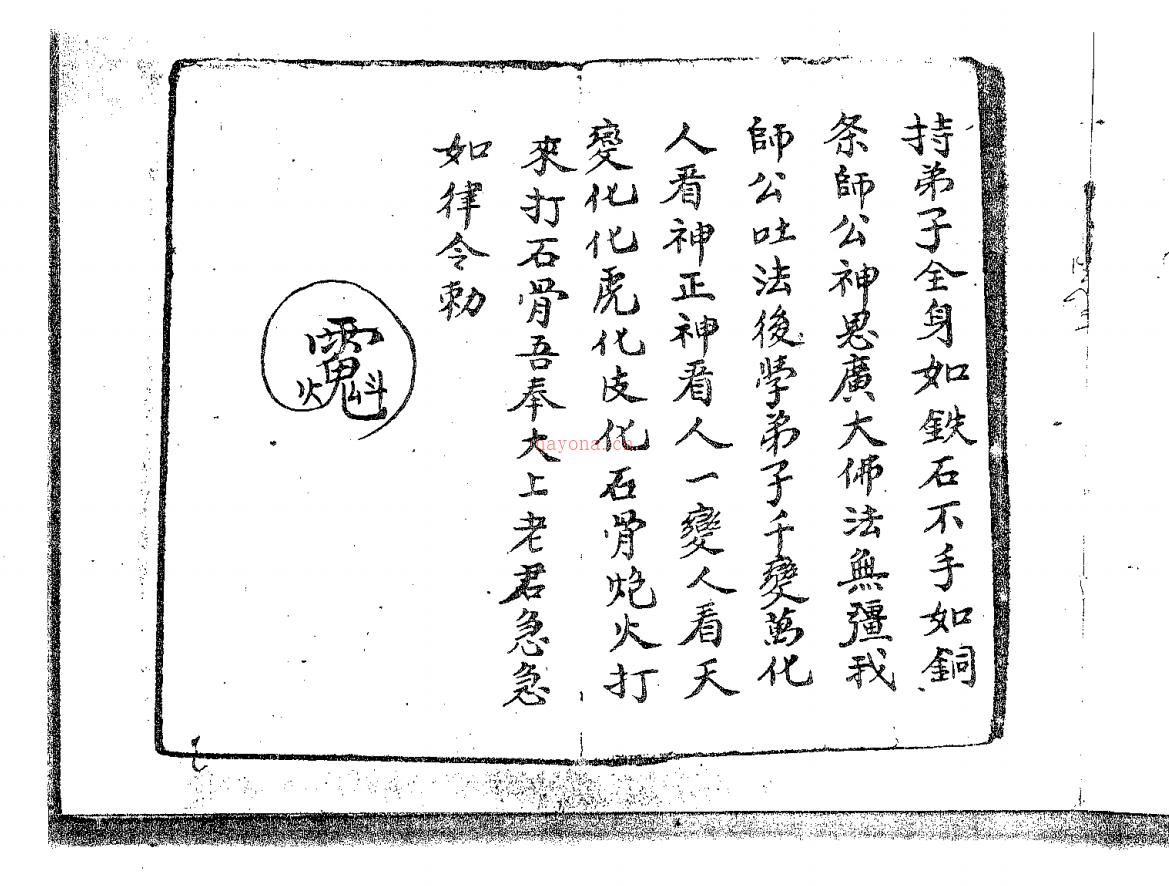 持弟子全身如鉄石不手如銅
条師公神恩廣大佛法無彊我
師公吐法後學弟子千變萬化
人看神正神看人一變人看天
變化化虎化皮化石骨炮火打
來打石骨吾奉大上老君急急
如律令勅
gayona.cn